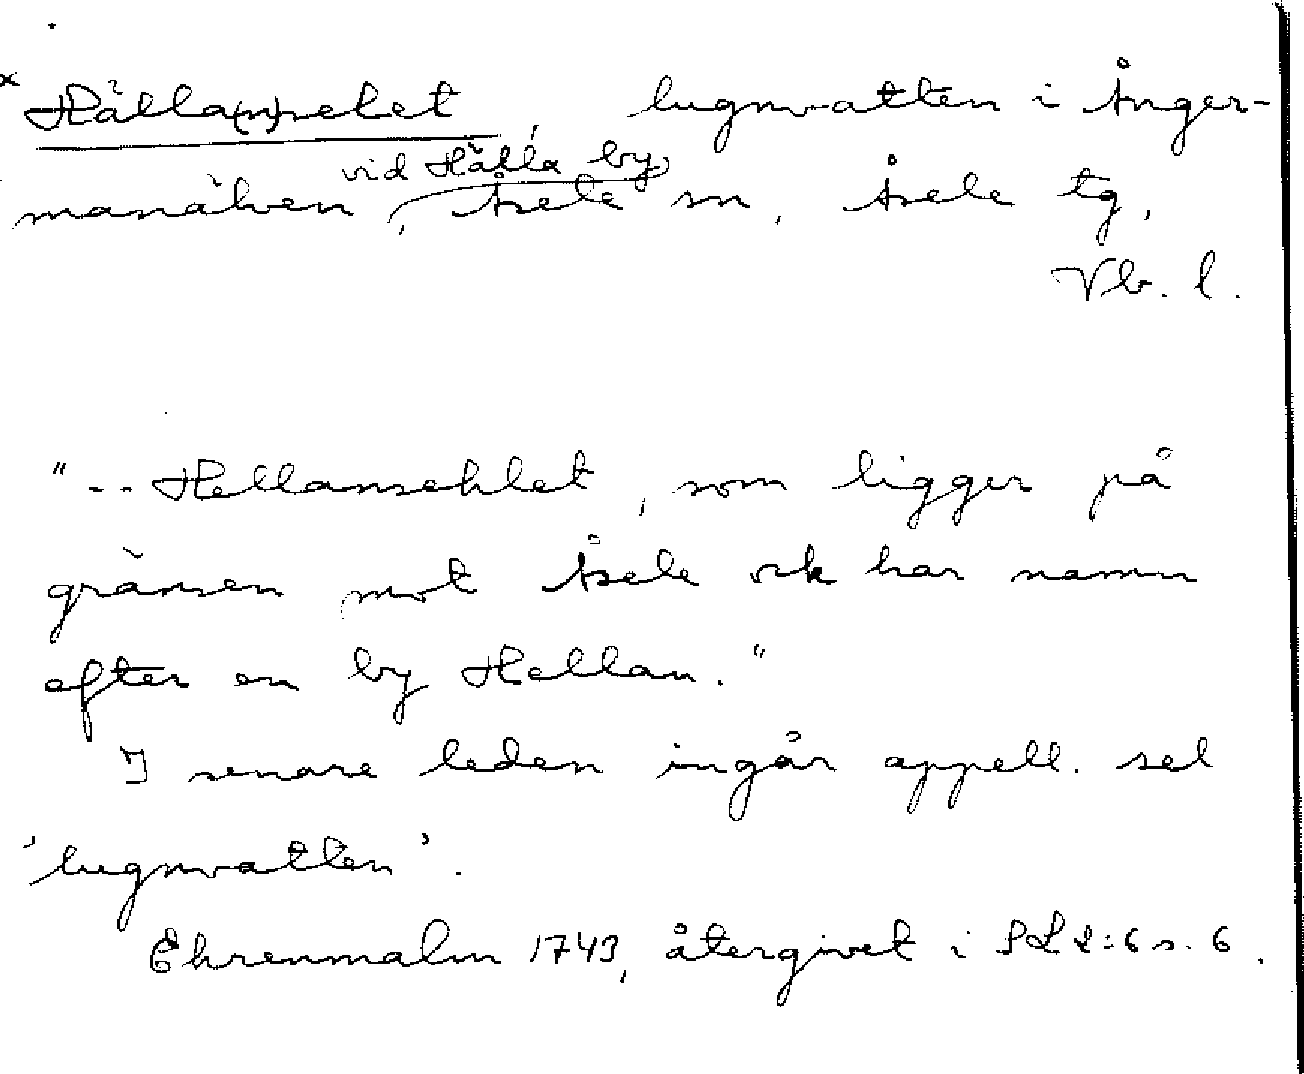 × Hälla(n)selet, lugnvatten i Ånger-
vid Hälla by
manälven, Åsele sn, Åsele tg,
Vb. l.
"-- Hellansehlet, som ligger på
gränsen mot Åsele ock har namn
efter en by Hellan."
I senare leden ingår appell. sel
'lugnvatten'.
Ehrenmalm 1743, återgivet i SLL:6 s. 6.